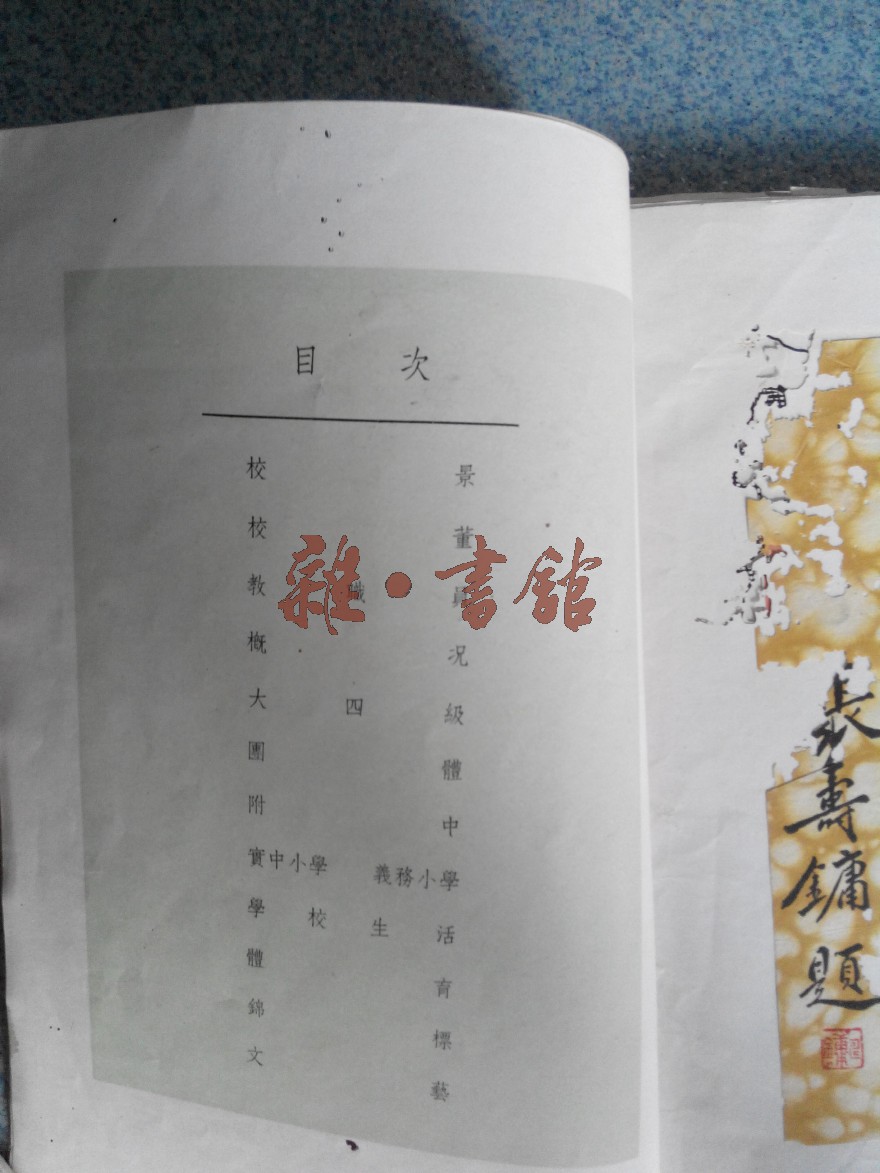 目 次
校 景
校 董
教 職 員
概 況
大 四 級
團 體
附 中
實中小學 義務小學
學 校 生 活
體 育
錦 標
文 藝
雜·書舘
壽鏞題